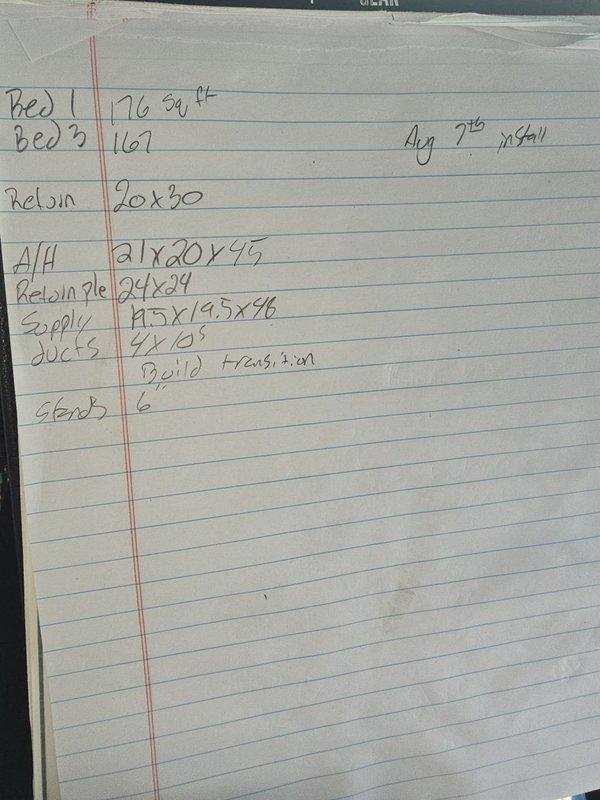 GEAR
Bed 1 176 sq ft
Bed 3 167
Aug 7th install
Return 20x30
A/H 21x20x45
Return ple 24x24
Supply 19.5x19.5x46
ducts 4x10s
Build transition
Stands 6"